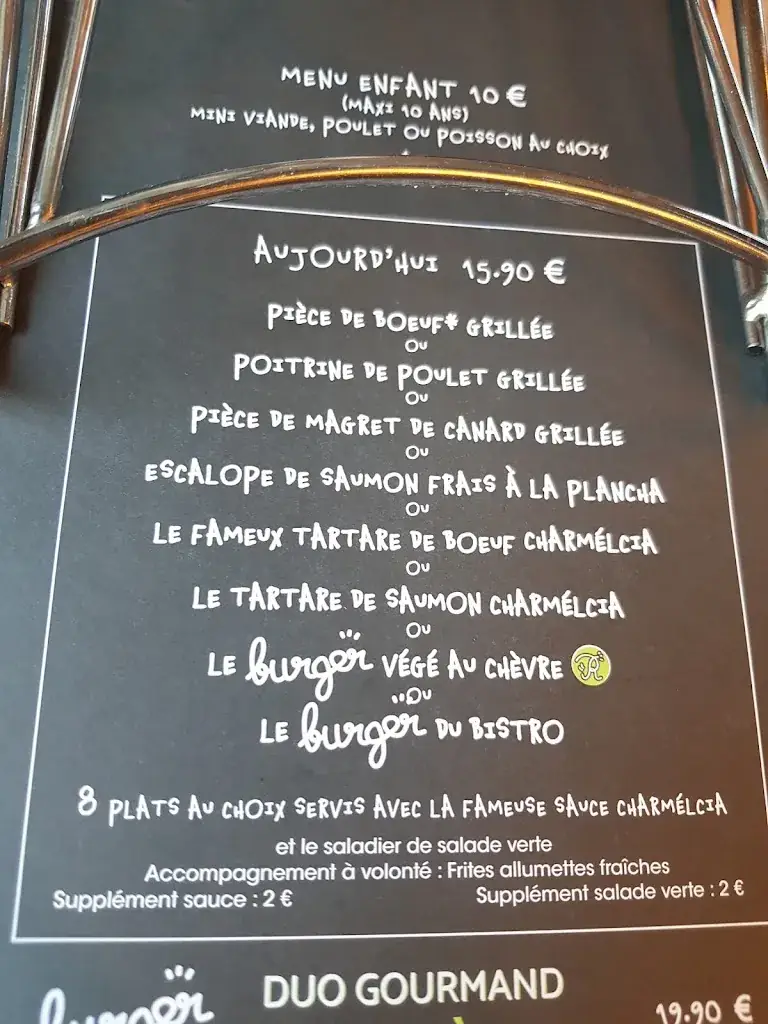 MENU ENFANT 10 €
(MAXI 10 ANS)
MINI VIANDE, POULET OU POISSON AU CHOIX
AUJOURD'HUI 15.90 €
PIÈCE DE BOEUF* GRILLÉE
OU
POITRINE DE POULET GRILLÉE
OU
PIÈCE DE MAGRET DE CANARD GRILLÉE
OU
ESCALOPE DE SAUMON FRAIS À LA PLANCHA
OU
LE FAMEUX TARTARE DE BOEUF CHARMÉLCIA
OU
LE TARTARE DE SAUMON CHARMÉLCIA
OU
LE burger VÉGÉ AU CHÈVRE R
OU
LE burger DU BISTRO
8 PLATS AU CHOIX SERVIS AVEC LA FAMEUSE SAUCE CHARMÉLCIA
et le saladier de salade verte
Accompagnement à volonté : Frites allumettes fraîches
Supplément sauce : 2 € Supplément salade verte : 2 €
burger DUO GOURMAND 19.90 €